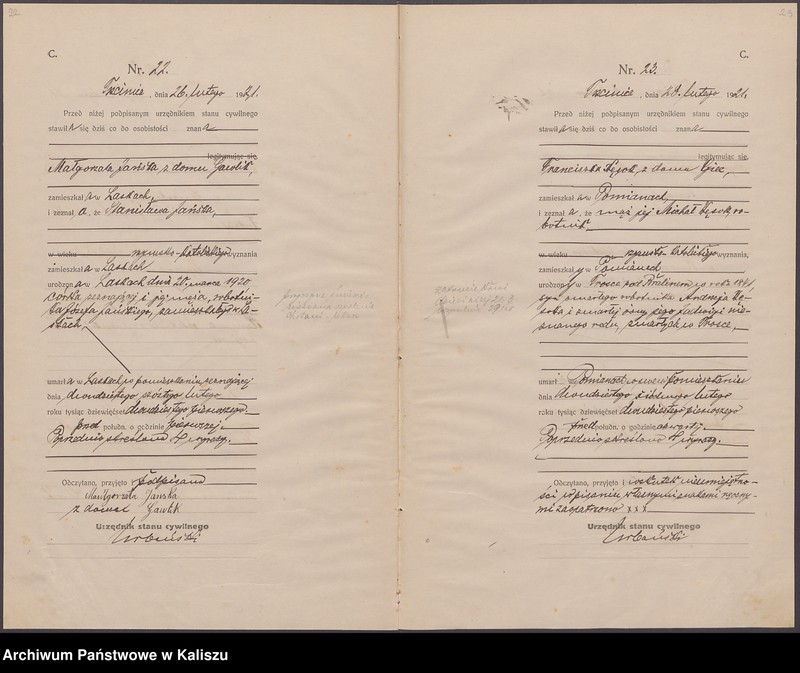 22
C.
Nr. 22.
Trcinica, dnia 26. lutego 1921.
Przed niżej podpisanym urzędnikiem stanu cywilnego
stawiła się dziś co do osobistości znana
legitymując się
Małgorzata Jańska z domu Gawlik,
zamieszkała w Laskach,
i zeznała, że Stanisława Jańska,
w wieku rzymsko-katolickiego wyznania
zamieszkała w Laskach
urodzona w Laskach dnia 20. marca 1920
córka zeznającej i jej męża, robotni-
ka Józefa Jańskiego, zamieszkałego w La-
skach,
umarła w Laskach w pomieszkaniu zeznającej
dnia dwudziestego szóstego lutego
roku tysiąc dziewięćset dwudziestego pierwszego
przed połudn. o godzinie pierwszej.
Poprzednio skreślono 4 wyrazy.
Odczytano, przyjęto i podpisano
Małgorzata Janska
z domu Gawlik
Urzędnik stanu cywilnego
Urbański
23
C.
Nr. 23.
Trcinica, dnia 28. lutego 1921.
Przed niżej podpisanym urzędnikiem stanu cywilnego
stawiła się dziś co do osobistości znana
legitymując się
Franciszka z domu
zamieszkała w Pomianach,
i zeznała, że mąż jej Michał ro-
botnik
w wieku rzymsko-katolickiego wyznania,
zamieszkały w Pomianach
urodzony w Trosce pod w roku 1841,
syn zmarłego robotnika Andrzeja
i zmarłej żony jego Jadwigi nie-
znanego rodu, zmarłych w Trosce,
umarł w Pomianach w swem pomieszkaniu
dnia dwudziestego siódmego lutego
roku tysiąc dziewięćset dwudziestego pierwszego
przed połudn. o godzinie czwartej.
Poprzednio skreślono 4 wyrazy.
Odczytano, przyjęto i wskutek nieumiejętno-
ści pisania własnymi znakami ręczny-
mi zaopatrzono x x x
Urzędnik stanu cywilnego
Urbański
Archiwum Państwowe w Kaliszu